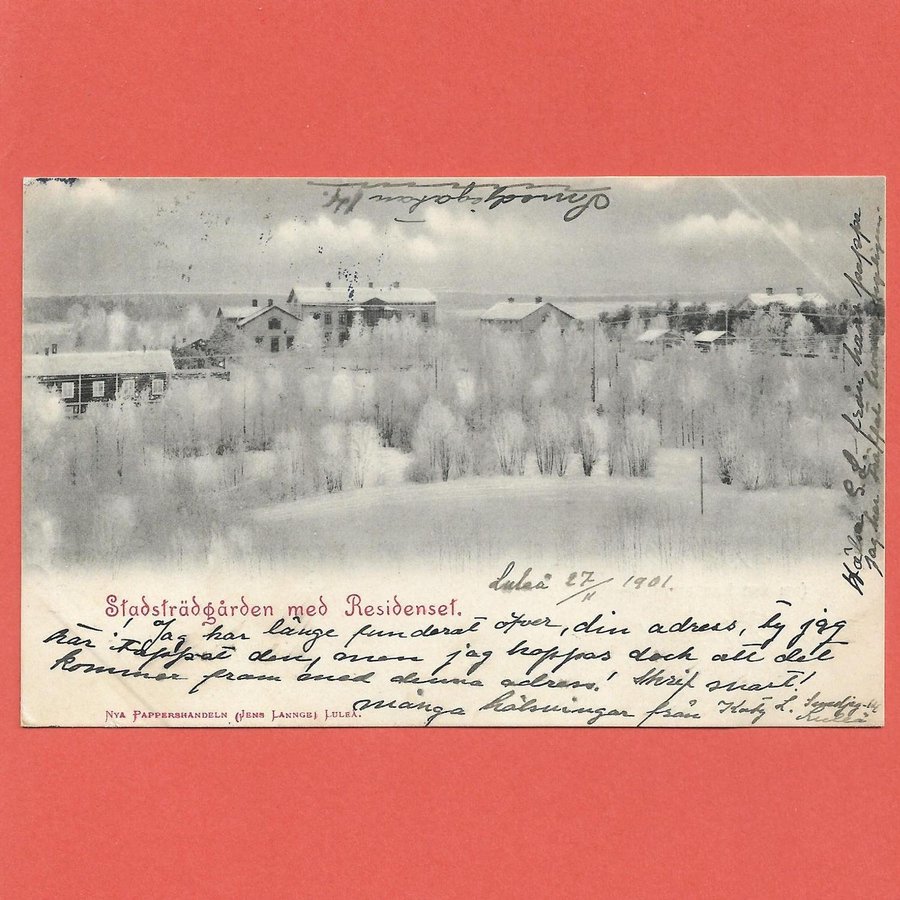 Smedjegatan 14.
Hälsa S. L. från herr pappa
jag har
Luleå 27/11 1901.
Stadsträdgården med Residenset.
Jag har länge funderat öfver, din adress, ty jag
har tappat den, men jag hoppas dock att det
kommer fram med denna adress! Skrif snart!
många hälsningar från Katy L. Smedjeg-14
Luleå
Nya Pappershandeln (Jens Lannge) Luleå.